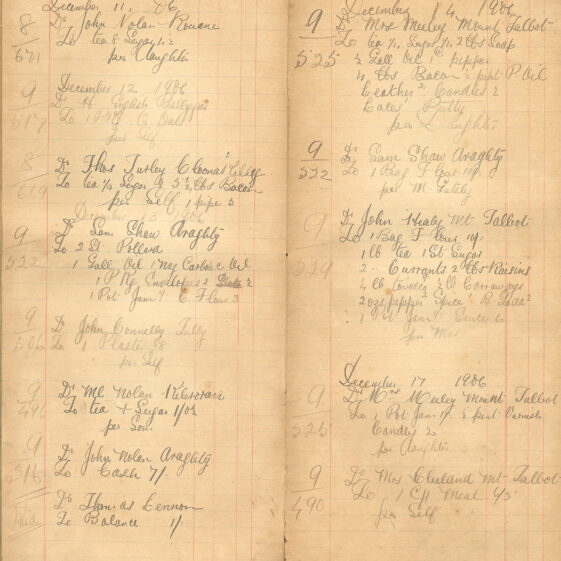 December 11, 06
8
671
Dr John Nolan Rouane
To tea & Sugar 1/2
per Daughter
December 12 1906
9
517
Dr English Ballygar
To 1 Pkg Q Oats
per Self
8
669
Dr Thos Turley Cloonakilly
To tea 1/4 Sugar 9 5½ lbs Bacon
per Self 1 pipe 3
December 13 1906
9
522
Dr Sam Shaw Araghty
To 2 St Pollard
1 Gall Oil 1 Carbolic Oil
1 Pkg Envelopes 2 2
1 Pot Jam C. Flour 3
9
506
Dr John Connelly Tully
To 1 Plaster 8
per Self
9
Dr Ml Nolan
To tea & Sugar 1/02
per Son
9
516
Dr John Nolan Araghty
To Cash 7/-
Dr Thomas Lennon
To Balance 1/-
December 14 1906
9
525
Dr Mrs Meeley Mount Talbot
To tea 1/4 Sugar 1/4 2 lbs Soap
½ Gall Oil pepper
4 lbs Bacon 2 pint P Oil
Leather 2 Candles 2
Putty
per Daughter
9
522
Dr Sam Shaw Araghty
To 1 Bag Flour 10/-
per M
9
529
Dr John Healy Mt Talbot
To 1 Bag Flour 10/-
1 lb tea 1 St Sugar
2 Currants 2 lbs Raisins
Carraways
2 ozs pepper 2 Spice B Soda 2
1 Pot Jam Sauce 6
per Mrs
December 17 1906
9
525
Dr Mrs Meeley Mount Talbot
To 1 Pot Jam ½ pint Varnish
Candles 2
per Daughter
9
490
Dr Mrs Cleland Mt Talbot
To 1 Meal
per Self